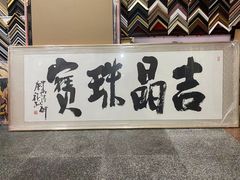 吉晶珠寶